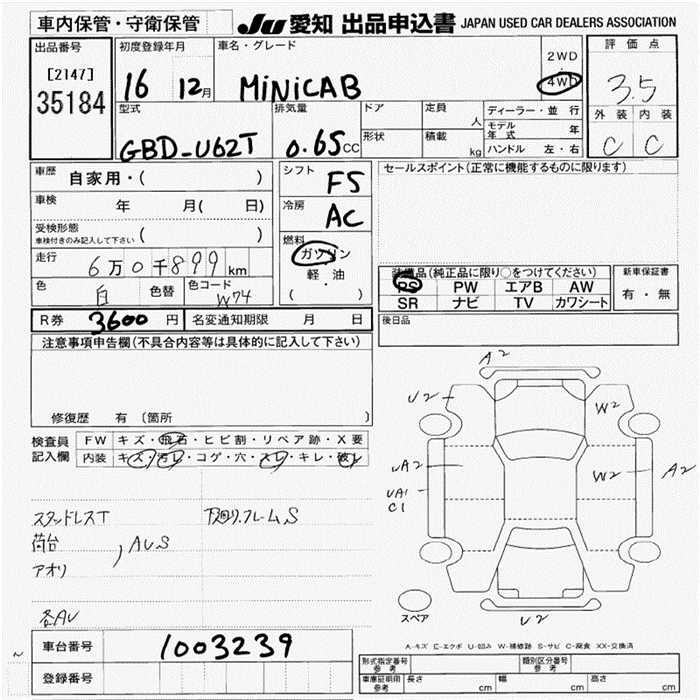 車内保管・守衛保管 Ju 愛知 出品申込書 JAPAN USED CAR DEALERS ASSOCIATION
出品番号 初度登録年月 車名・グレード 2WD 評価点
[2147] 16 12月 MiNiCAB ・4WD 3.5
35184
型式 排気量 ドア 定員 人 ディーラー・並行 外装 内装
GBD-U62T 0.65CC 形状 積載 kg モデル年式 年 C C
ハンドル 左・右
車歴 自家用・( ) シフト F5 セールスポイント(正常に機能するものに限ります)
車検 年 月( 日) 冷房 AC
受検形態 車検付きのみ記入して下さい ( )
走行 6万0千899km 燃料 ガソリン
軽・油
( )
色 白 色替 色コード W74
装備品(純正品に限り○をつけてください) 新車保証書
PS PW エアB AW 有・無
SR ナビ TV カワシート
R券 3600円 名変通知期限 月 日 後日品
注意事項申告欄(不具合内容等は具体的に記入して下さい)
修復歴 有 〔箇所 〕
検査員 FW キズ・飛石・ヒビ割・リペア跡・X要
記入欄 内装 キズ・汚レ・コゲ・穴・スレ・キレ・破レ
スタッドレスT 下廻リ.フレームS
荷台
アオリ
AUS
各AU
A2
U2
W2
UA2
W2
A2
UA1
C1
スペア
U2
A-キズ E-エクボ U-凹み W-補修跡 S-サビ C-腐食 XX-交換済
車台番号 1003239
登録番号
形式指定番号 参考 類別区分番号 参考
車庫証明用 参考 長さ cm 幅 cm 高さ cm